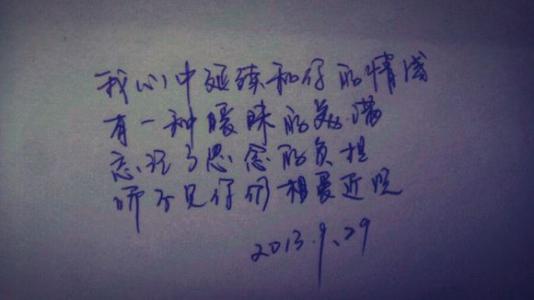 我心中延续和你的情感
有一种暧昧的美满
忘记了思念的负担
听不见你们相爱近况
2013.9.29